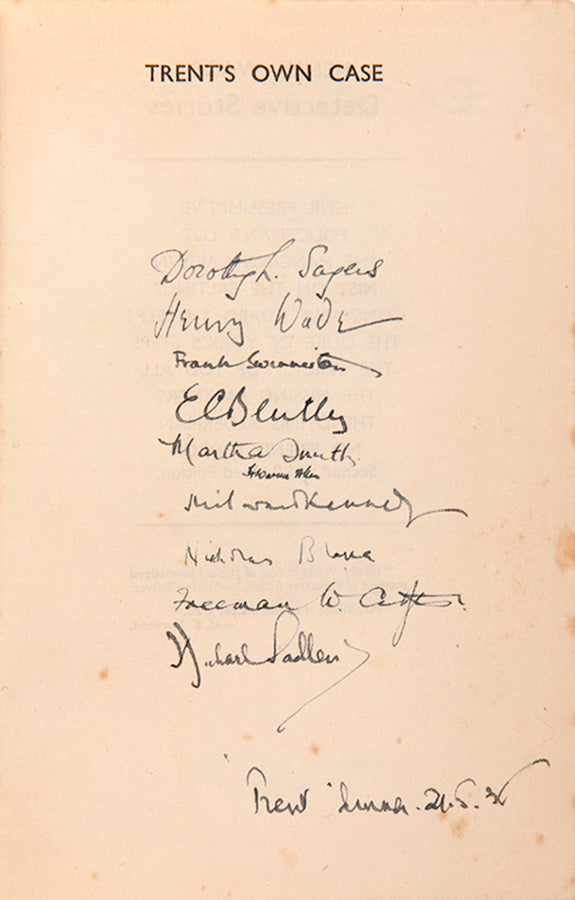 TRENT'S OWN CASE
Dorothy L. Sayers
Henry Wade
Frank Swinnerton
E C Bentley
Martha Smith
H Warner Allen
Milward Kennedy
Nicholas Blake
Freeman W. Crofts.
Michael Sadleir
'Trent' dinner. 21.5.36